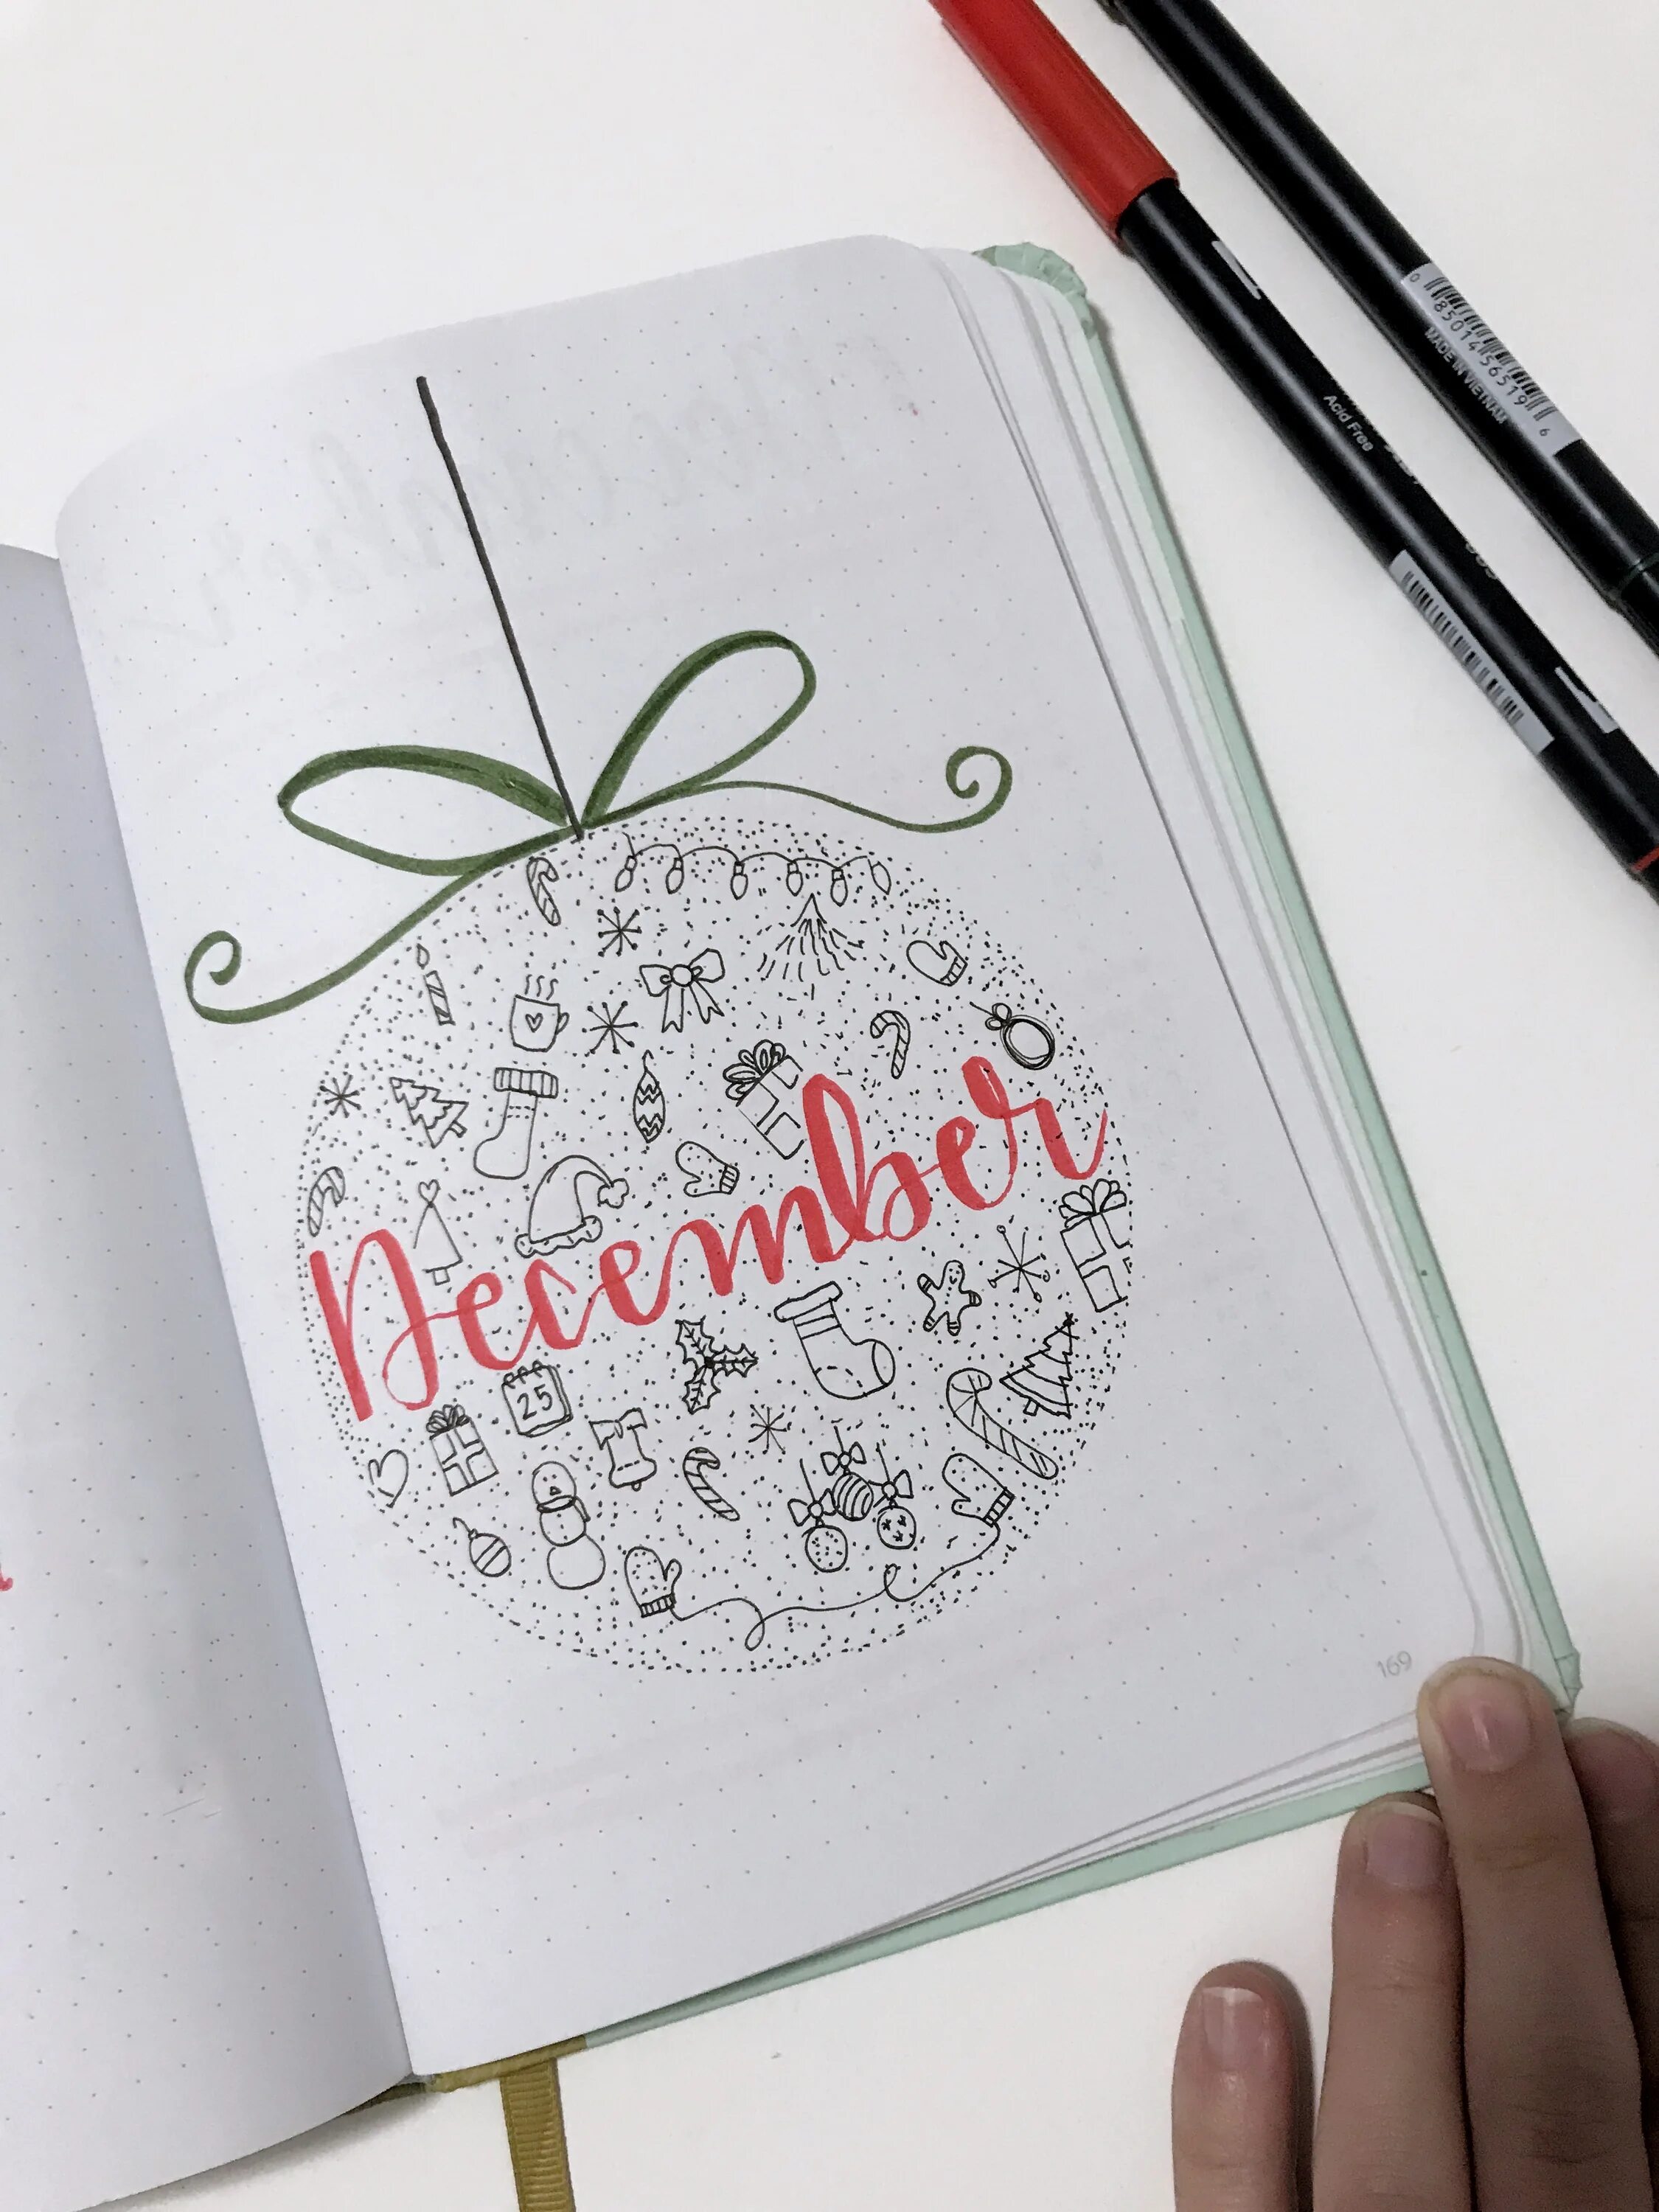 0 85014 56519 6
MADE IN VIETNAM
Acid Free
December
25
169